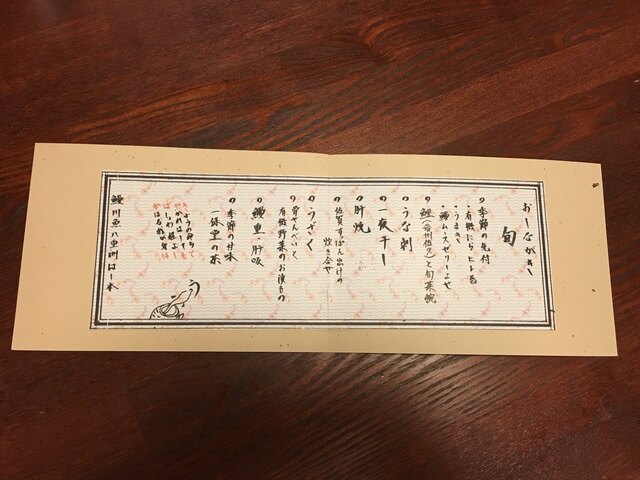 旬
・季節の先付
・有機にら ヒレ巻
・うまき
・鰻ムースゼリーよせ
・鯉(信州佐久)と旬菜椀
・うな刺
・一夜干し
・肝焼
・佐賀すっぽん出汁の
炊き合せ
・うざく
・骨せんべい
有機野菜のお漬もの
・鰻重・肝吸
・季節の甘味
一保堂の茶
鰻川魚八重洲はし本